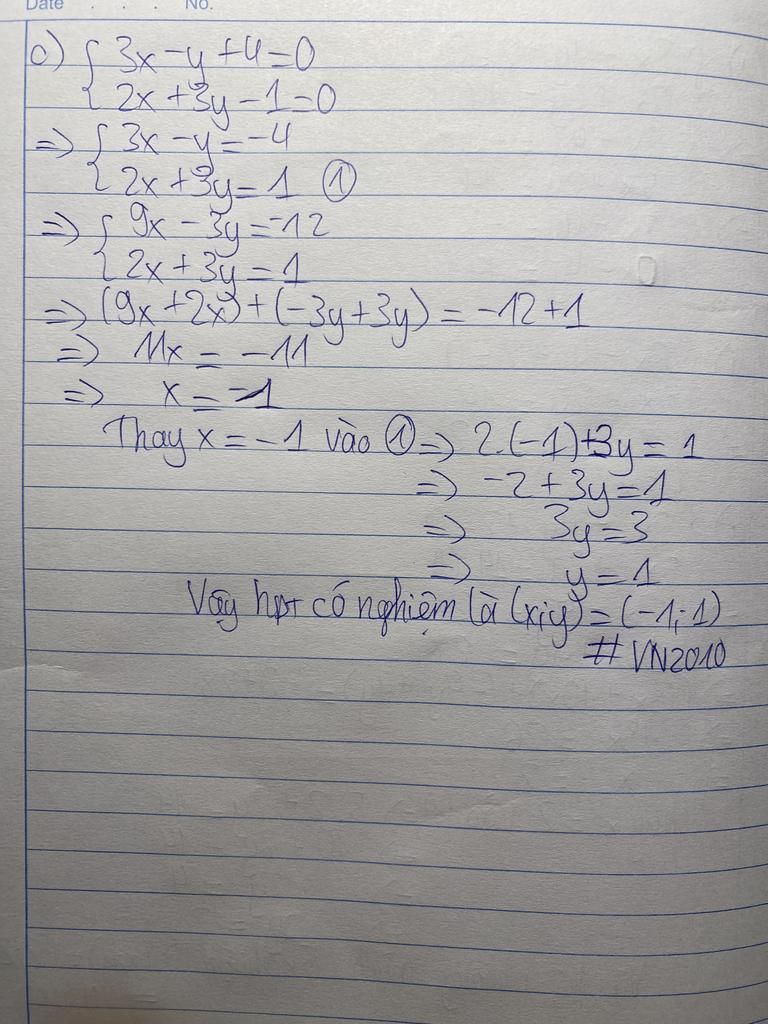 Date . . . No.
c) { 3x - y + 4 = 0
{ 2x + 3y - 1 = 0
=> { 3x - y = -4
{ 2x + 3y = 1 ①
=> { 9x - 3y = -12
{ 2x + 3y = 1
=> (9x + 2x) + (-3y + 3y) = -12 + 1
=> 11x = -11
=> x = -1
Thay x = -1 vào ① => 2.(-1) + 3y = 1
=> -2 + 3y = 1
=> 3y = 3
=> y = 1
Vậy hpt có nghiệm là (x;y) = (-1; 1)
# VN2010